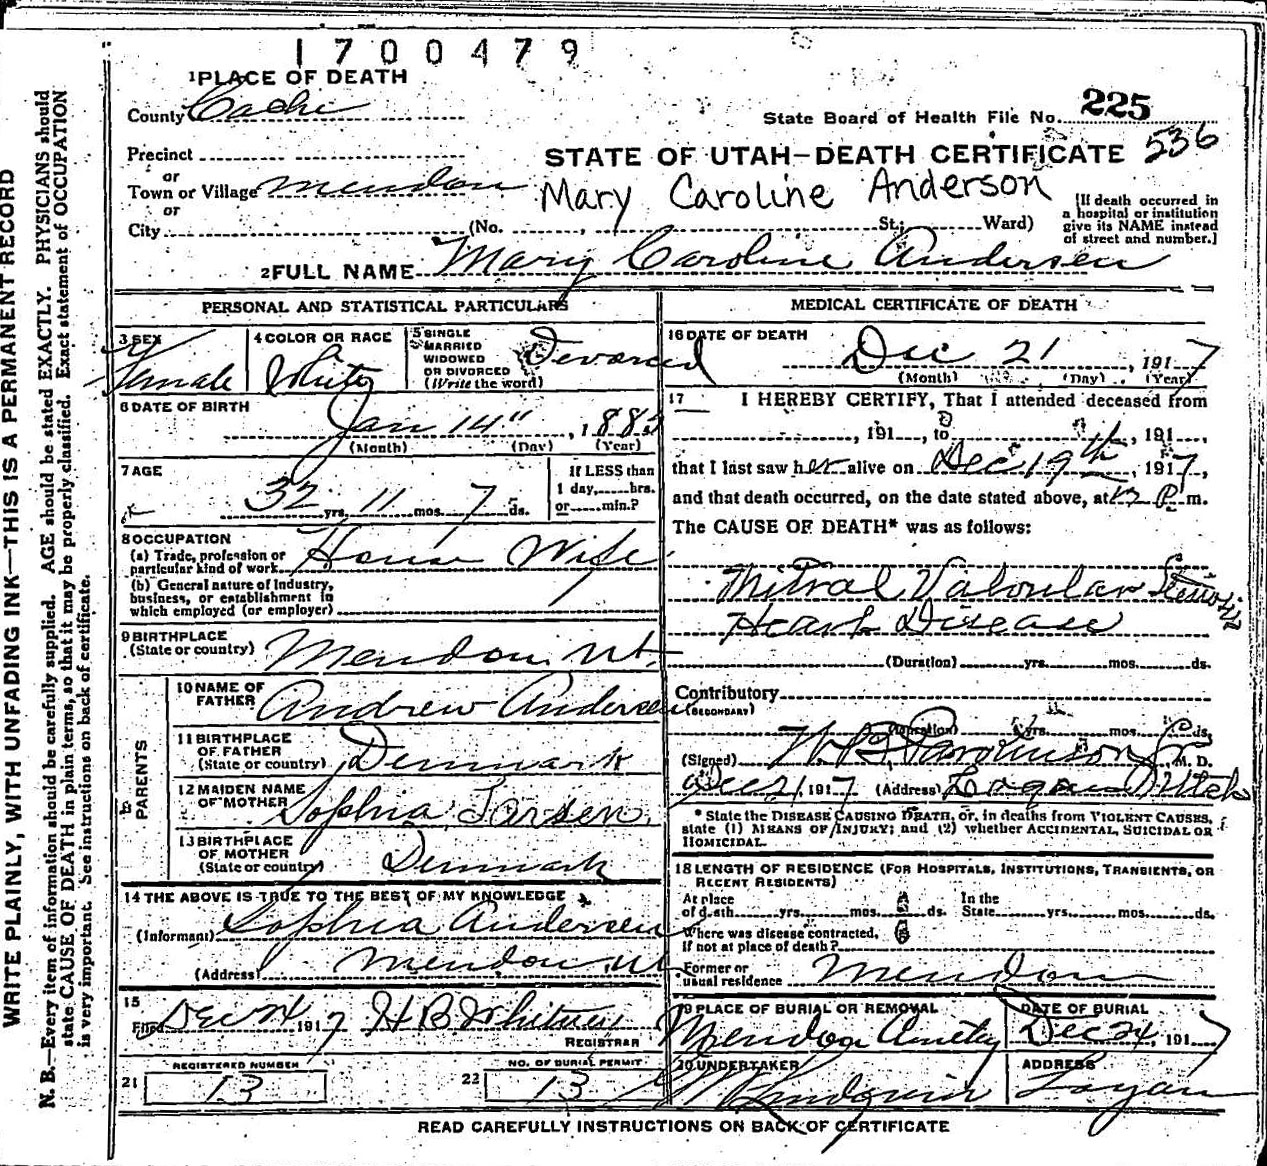 1700479
1 PLACE OF DEATH
County Cache
State Board of Health File No. 225
536
Precinct
or
Town or Village Mendon
or
City (No. , St; Ward)
STATE OF UTAH—DEATH CERTIFICATE
Mary Caroline Anderson
[If death occurred in
a hospital or institution
give its NAME instead
of street and number.]
2 FULL NAME Mary Caroline Andersen
PERSONAL AND STATISTICAL PARTICULARS
3 SEX
Female
4 COLOR OR RACE
White
5 SINGLE
MARRIED
WIDOWED
OR DIVORCED
(Write the word)
Devorced
6 DATE OF BIRTH
Jan 14", 188
(Month) (Day) (Year)
7 AGE
32 yrs. 11 mos. 7 ds.
If LESS than
1 day, hrs.
or min.?
8 OCCUPATION
(a) Trade, profession or
particular kind of work House Wife
(b) General nature of industry,
business, or establishment in
which employed (or employer)
9 BIRTHPLACE
(State or country) Mendon Ut.
PARENTS
10 NAME OF
FATHER Andrew Andersen
11 BIRTHPLACE
OF FATHER
(State or country) Denmark
12 MAIDEN NAME
OF MOTHER Sophia Larsen
13 BIRTHPLACE
OF MOTHER
(State or country) Denmark
14 THE ABOVE IS TRUE TO THE BEST OF MY KNOWLEDGE
(Informant) Sophia Andersen
(Address) Mendon, Ut
15
Filed Dec 24 1917 H B Whitney
REGISTRAR
REGISTERED NUMBER
21 13
NO. OF BURIAL PERMIT
22 13
MEDICAL CERTIFICATE OF DEATH
16 DATE OF DEATH
Dec 21, 1917
(Month) (Day) (Year)
17 I HEREBY CERTIFY, That I attended deceased from
, 191 , to , 191 ,
that I last saw her alive on Dec 19th, 1917,
and that death occurred, on the date stated above, at 12 P. m.
The CAUSE OF DEATH* was as follows:
Mitral Valvular Stenosis
Heart Disease
(Duration) yrs. mos. ds.
Contributory
(SECONDARY)
(Duration) yrs. mos. ds.
(Signed) W.B. Parkinson Jr M. D.
Dec 21, 1917 (Address) Logan Utah
* State the DISEASE CAUSING DEATH, or, in deaths from VIOLENT CAUSES,
state (1) MEANS OF INJURY; and (2) whether ACCIDENTAL, SUICIDAL OR
HOMICIDAL.
18 LENGTH OF RESIDENCE (FOR HOSPITALS, INSTITUTIONS, TRANSIENTS, OR
RECENT RESIDENTS)
At place
of death yrs. mos. ds.
In the
State yrs. mos. ds.
Where was disease contracted,
if not at place of death?
Former or
usual residence Mendon
19 PLACE OF BURIAL OR REMOVAL
Mendon
DATE OF BURIAL
Dec 24, 1917
20 UNDERTAKER
Lindquist
ADDRESS
Logan
READ CAREFULLY INSTRUCTIONS ON BACK OF CERTIFICATE
WRITE PLAINLY, WITH UNFADING INK—THIS IS A PERMANENT RECORD
N. B.—Every item of information should be carefully supplied. AGE should be stated EXACTLY. PHYSICIANS should
state CAUSE OF DEATH in plain terms, so that it may be properly classified. Exact statement of OCCUPATION
is very important. See instructions on back of certificate.